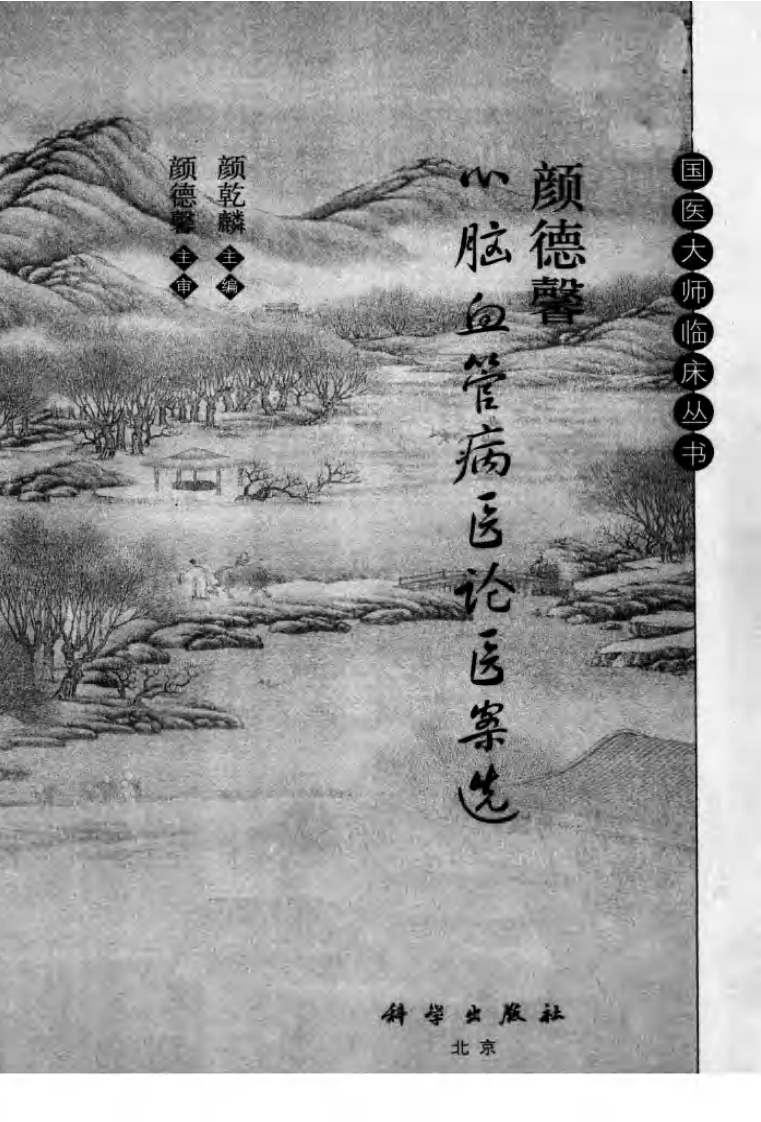 国医大师临床丛书
颜德馨
心脑血管病医论医案选
颜乾麟 主编
颜德馨 主审
科学出版社
北京